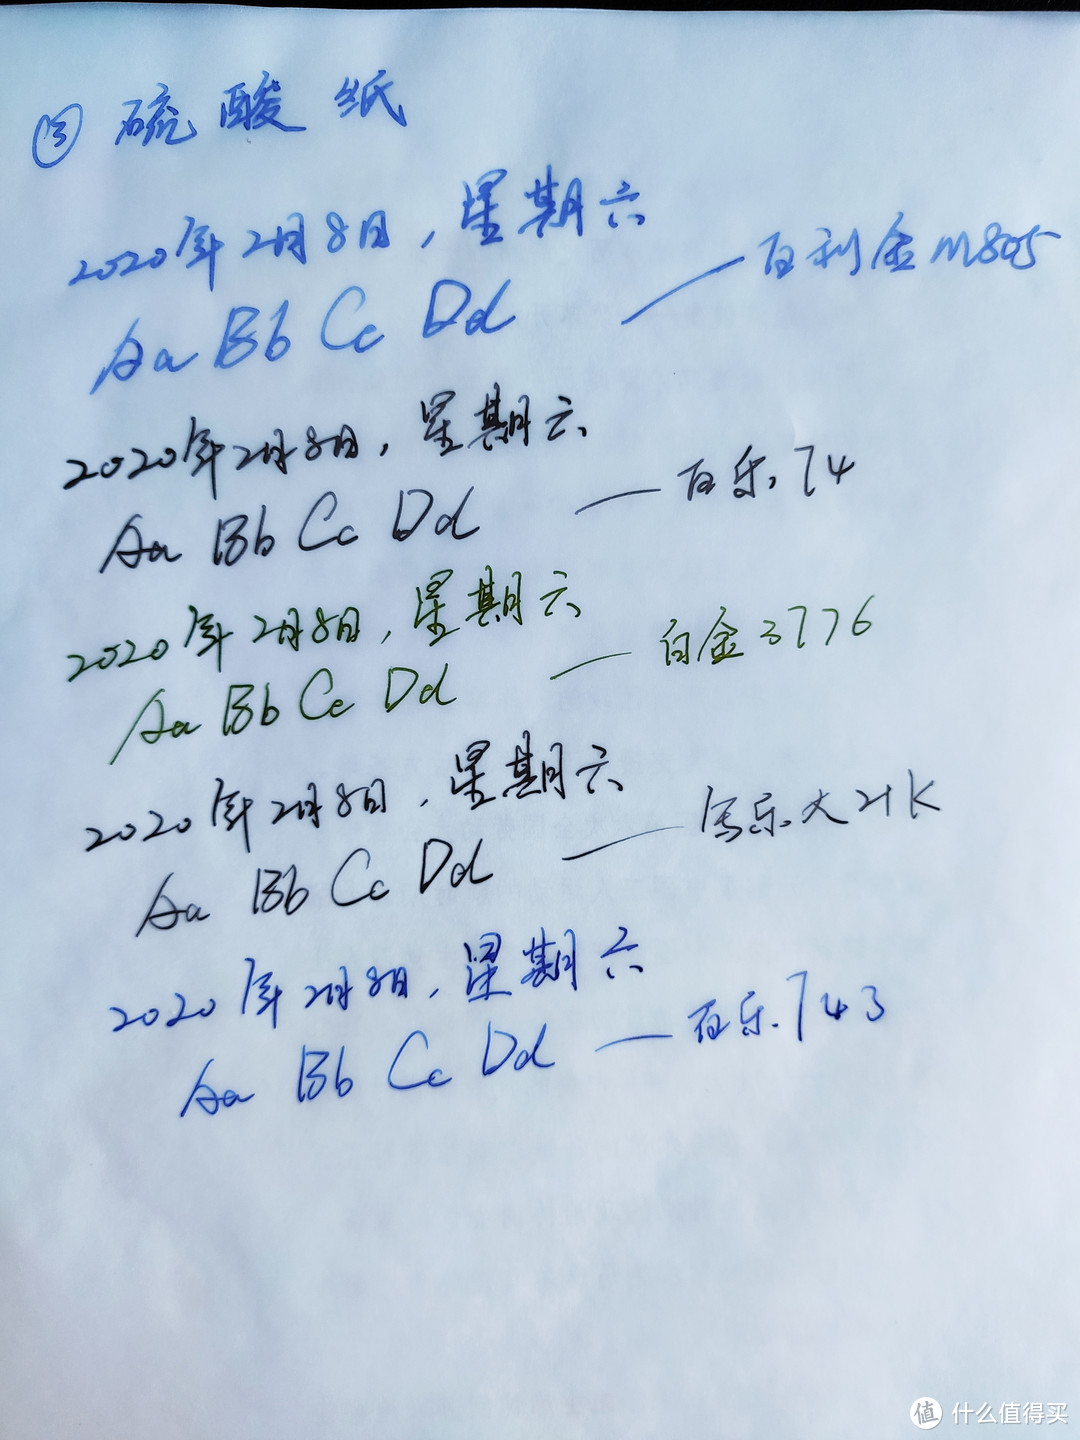 ③ 硫酸纸
2020年2月8日，星期六
Aa Bb Cc Dd —— 百利金M805
2020年2月8日，星期六
Aa Bb Cc Dd —— 百乐74
2020年2月8日，星期六
Aa Bb Cc Dd —— 白金3776
2020年2月8日，星期六
Aa Bb Cc Dd —— 写乐大21K
2020年2月8日，星期六
Aa Bb Cc Dd —— 百乐743
值 什么值得买